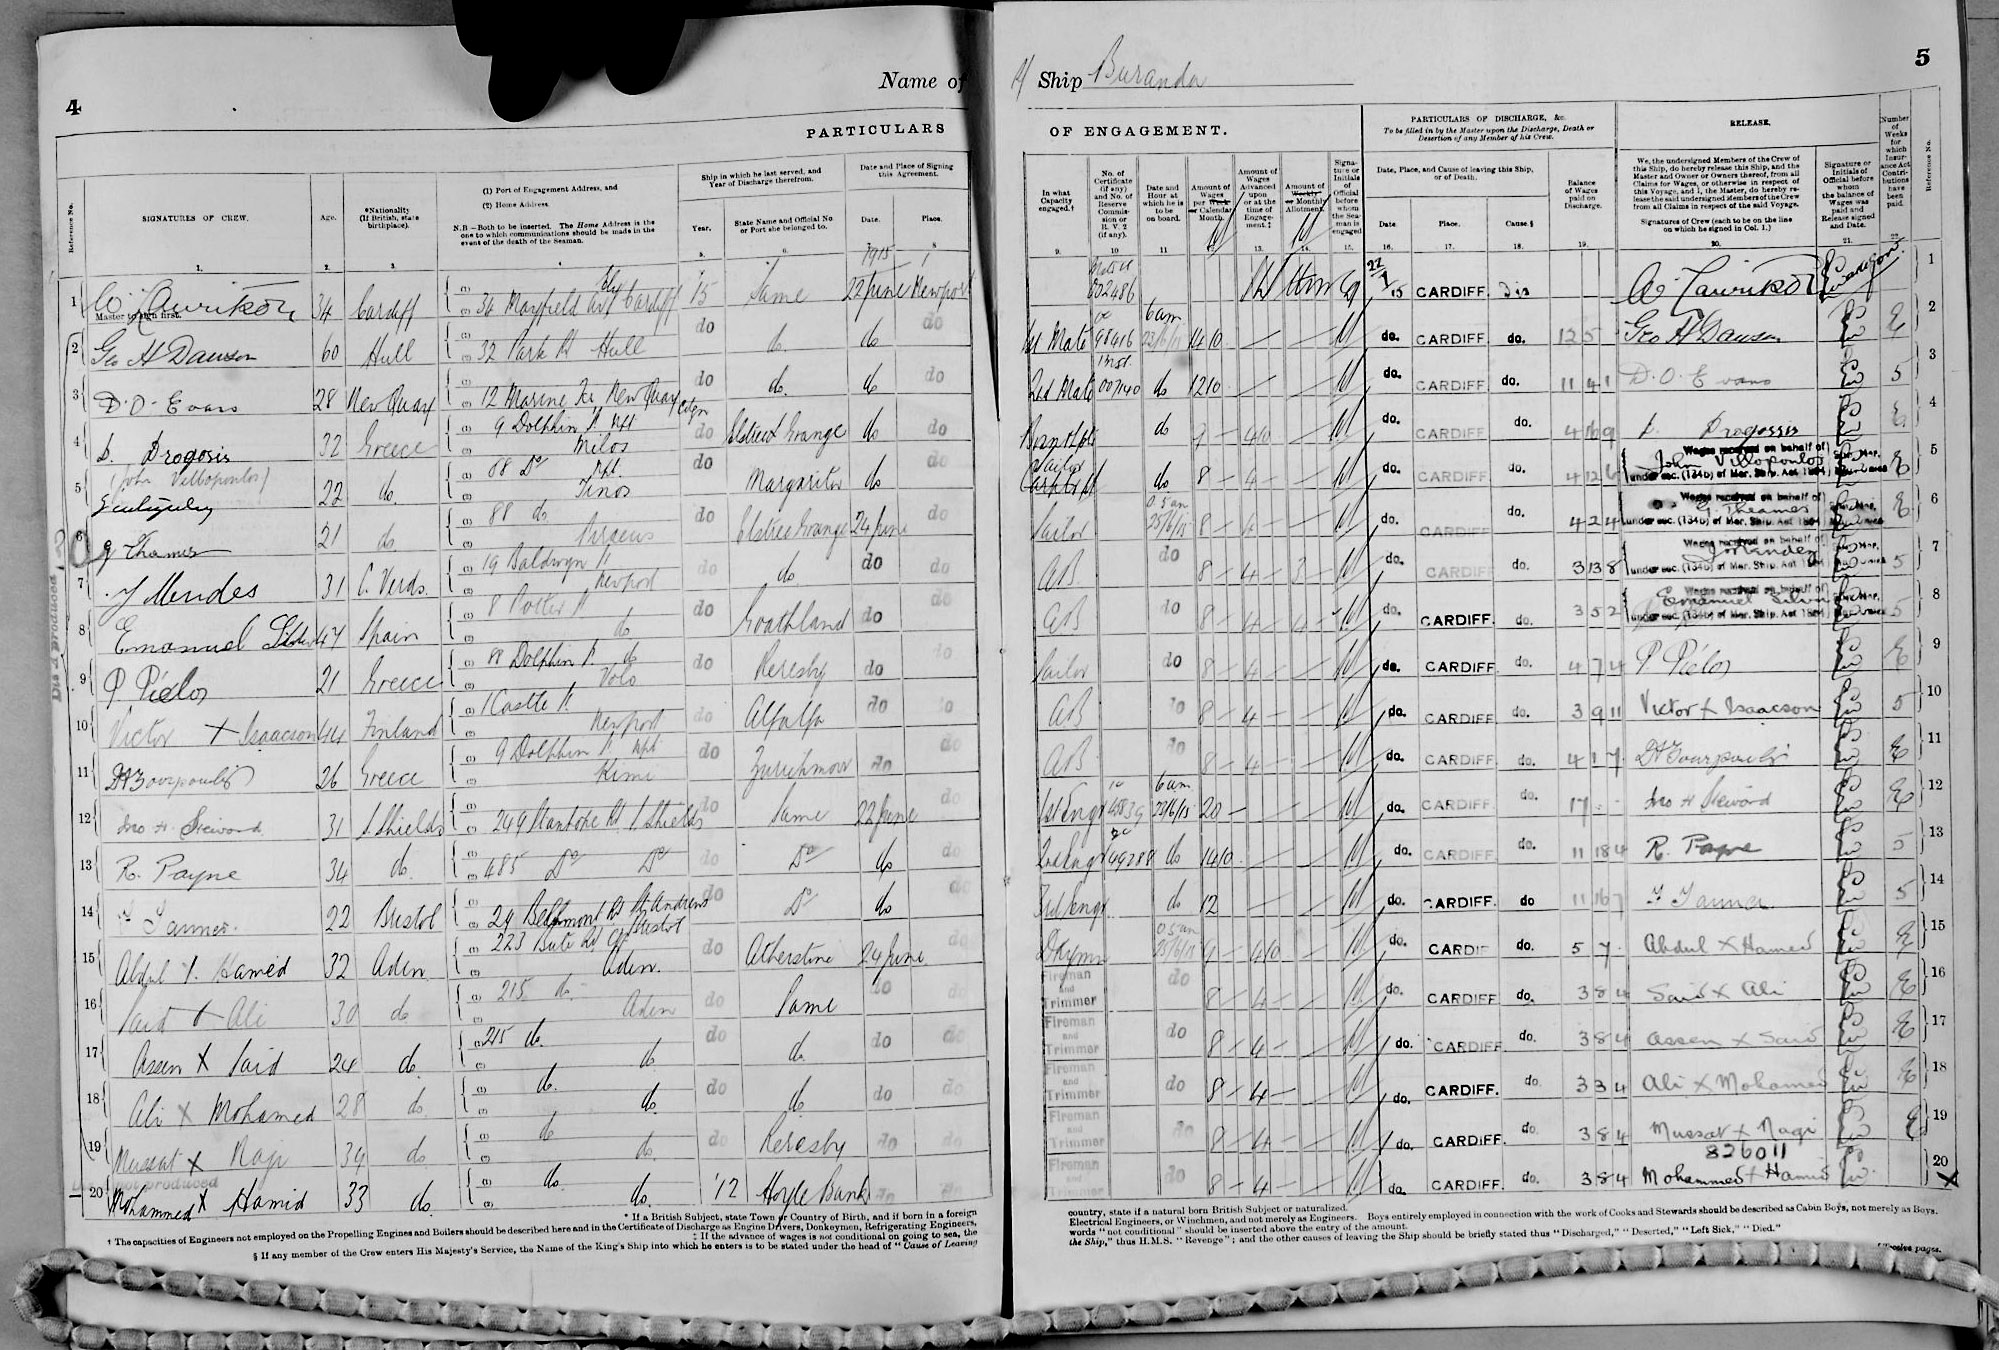 4
Name of
PARTICULARS
Reference No.
SIGNATURES OF CREW.
Age.
*Nationality
(If British, state
birthplace).
(1) Port of Engagement Address, and
(2) Home Address.
N.B—Both to be inserted. The Home Address is the
one to which communications should be made in the
event of the death of the Seaman.
Ship in which he last served, and
Year of Discharge therefrom.
Year.
State Name and Official No
or Port she belonged to.
Date and Place of Signing
this Agreement.
Date.
Place.
1915
1 34 Cardiff 36 Mayfield Cardiff 15 Same 22 June Newport
Master to sign first.
2 Geo H Dawson 60 Hull 32 Park Rd Hull do do do do
3 D. O. Evans 28 New Quay 12 Marine Tce New Quay do do. do do
4 D. Drogosis 32 Greece 9 Dolphin St Npt Milos do Elstree Grange do do
(John Villopoulos)
5 22 do. 88 Do Npt. Tinos do Margarita do do
6 G Thames 21 do 88 do Piraeus Elstree Grange 24 June do
7 J Mendes 31 C. Verds. 19 Baldwyn St Newport do do. do do
8 Emanuel 47 Spain 8 Potter St do do Goathland do do
9 P Pielos 21 Greece 88 Dolphin St do Volo do Reresby do do
10 Victor X Isaacson 44 Finland 1 Castle St Newport do Alfalfa do do
11 26 Greece 9 Dolphin St Npt Kimi do Zurichmoor do do
12 Jno H. Steword 31 S. Shields 249 Stanhope Rd S. Shields do Same 22 June do
13 R. Payne 34 do. 485 Do Do do Do do do
14 F Tanner 22 Bristol 24 Belmont Rd St Andrews Bristol do Do do do
15 Abdul X Hamed 32 Aden 223 Bute Rd Cf Aden. do Atherstone 24 June do
16 Said X Ali 30 do 215 do. Aden do Same do do
17 Assen X Said 24 do. 215 do. do do do. do do
18 Ali X Mohamed 28 do do. do. do do. do do
19 Mussat X Nagi 34 do do do. do Reresby do do
not produced
20 Mohammed X Hamid 33 do. do. do. '12 Hoyle Bank do do
Dis A produced
* If a British Subject, state Town or Country of Birth, and if born in a foreign
† The capacities of Engineers not employed on the Propelling Engines and Boilers should be described here and in the Certificate of Discharge as Engine Drivers, Donkeymen, Refrigerating Engineers,
‡ If the advance of wages is not conditional on going to sea, the
§ If any member of the Crew enters His Majesty's Service, the Name of the King's Ship into which he enters is to be stated under the head of "Cause of Leaving
5
Ship Buranda
OF ENGAGEMENT.
PARTICULARS OF DISCHARGE, &c.
To be filled in by the Master upon the Discharge, Death or
Desertion of any Member of his Crew.
RELEASE.
In what
Capacity
engaged.†
No. of
Certificate
(if any)
and No. of
Reserve
Commis-
sion or
R. V. 2
(if any).
Date and
Hour at
which he is
to be
on board.
Amount of
Wages
per Week
or Calendar
Month.
Amount of
Wages
Advanced
upon
or at the
time of
Engage-
ment.‡
Amount of
Weekly
or Monthly
Allotment.
Signa-
ture or
Initials
of
Official
before
whom
the Sea-
man is
engaged
Date, Place, and Cause of leaving this Ship,
or of Death.
Date
Place.
Cause.§
Balance
of Wages
paid on
Discharge.
We, the undersigned Members of the Crew of
this Ship, do hereby release this Ship, and the
Master and Owner or Owners thereof, from all
Claims for Wages, or otherwise in respect of
this Voyage, and I, the Master, do hereby re-
lease the said undersigned Members of the Crew
from all Claims in respect of the said Voyage.
Signatures of Crew (each to be on the line
on which he signed in Col. 1.)
Signature or
Initials of
Official before
whom
the balance of
Wages was
paid and
Release signed
and Date.
Number
of
Weeks
for
which
Insur-
ance Act
Contri-
butions
have
been
paid.
Reference No.
9. 10 11 12. 13. 14. 15. 16. 17. 18. 19. 20. 21. 22.
Master 002486 22/7/15 CARDIFF Dis 1
1st Mate 98416 6 am 22/6/15 14 10 do. CARDIFF. do. 12 5 Geo H Dawson 2
2nd Mate 007140 do 12 10 do. CARDIFF. do. 11 4 1 D. O. Evans 5 3
do 9 4 10 do. CARDIFF do. 4 16 9 D. Drogosis 4
Sailor do 8 4 do. CARDIFF do. 4 12 6 John Villopoulos 5
Wages received on behalf of
under sec. (134b) of Mer. Ship. Act 1894
Sailor 25/6/15 8 4 do. CARDIFF do. 4 2 4 G. Theames 6
Wages received on behalf of
under sec. (134b) of Mer. Ship. Act 1894
AB do 8 4 3 do. CARDIFF do. 3 13 8 J Mendez 5 7
Wages received on behalf of
under sec. (134b) of Mer. Ship. Act 1894
AB do 8 4 4 do. CARDIFF. do. 3 5 2 Emanuel Silva 5 8
Wages received on behalf of
under sec. (134b) of Mer. Ship. Act 1894
Sailor do 8 4 do. CARDIFF. do. 4 7 4 P Pielos 9
AB do 8 4 do. CARDIFF do. 3 9 11 Victor X Isaacson 5 10
AB do 8 4 do. CARDIFF. do. 4 1 7 11
1st Engr 6 am 22/6/15 20 do. CARDIFF. do. 17 Jno H Steword 12
2nd Engr 49288 do 14 10 do. CARDIFF. do. 11 18 4 R. Payne 5 13
3rd Engr do 12 do. CARDIFF. do 11 16 7 F Tanner 5 14
Dkymn 25/6/15 9 4 10 do. CARDIF do. 5 7 Abdul X Hamed 15
Fireman and Trimmer do 8 4 do. CARDIFF do. 3 8 4 Said X Ali 16
Fireman and Trimmer do 8 4 do. CARDIFF do. 3 8 4 Assen X Said 17
Fireman and Trimmer do 8 4 do. CARDIFF. do. 3 3 4 Ali X Mohamed 18
Fireman and Trimmer do 8 4 do. CARDIFF. do. 3 8 4 Mussat X Nagi 19
826011
Fireman and Trimmer do 8 4 do. CARDIFF. do. 3 8 4 Mohammed X Hamid 20 X
country, state if a natural born British Subject or naturalized.
Electrical Engineers, or Winchmen, and not merely as Engineers. Boys entirely employed in connection with the work of Cooks and Stewards should be described as Cabin Boys, not merely as Boys.
words "not conditional" should be inserted above the entry of the amount.
the Ship," thus H.M.S. "Revenge"; and the other causes of leaving the Ship should be briefly stated thus "Discharged," "Deserted," "Left Sick," "Died."
[Twelve pages.